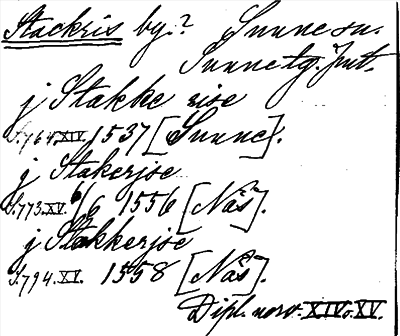 Stackris by.? Sunne sn.
Sunne tg. Jmt.
j Stakke rise
S.764.XIV. 1537 [Sunne].
j Stakerjse
S.773.XV. 6/6 1556 [Näs].
j Stakkerjse
S.794.XV. 1558 [Näs].
Dipl. norv. XIV o. XV.